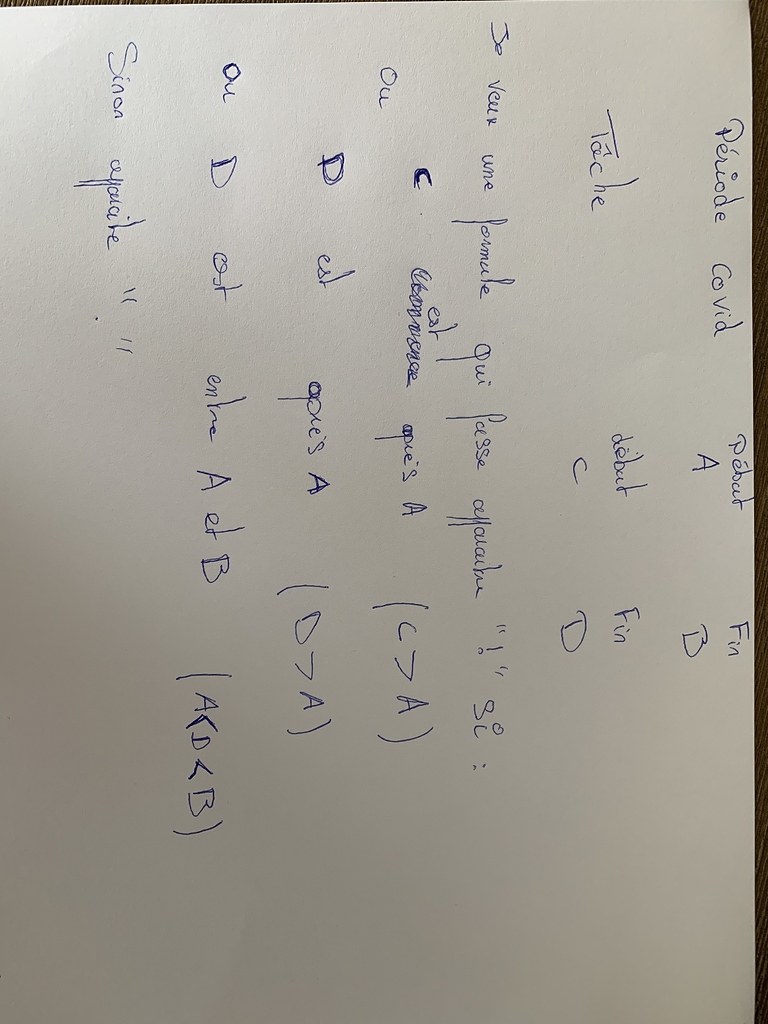 Début Fin
Période Covid A B
Tâche début Fin
C D
Je veux une formule qui fasse apparaître "!" si :
Ou C est après A (C > A)
D est après A (D > A)
ou D est entre A et B (A < D < B)
Sinon apparaître " "